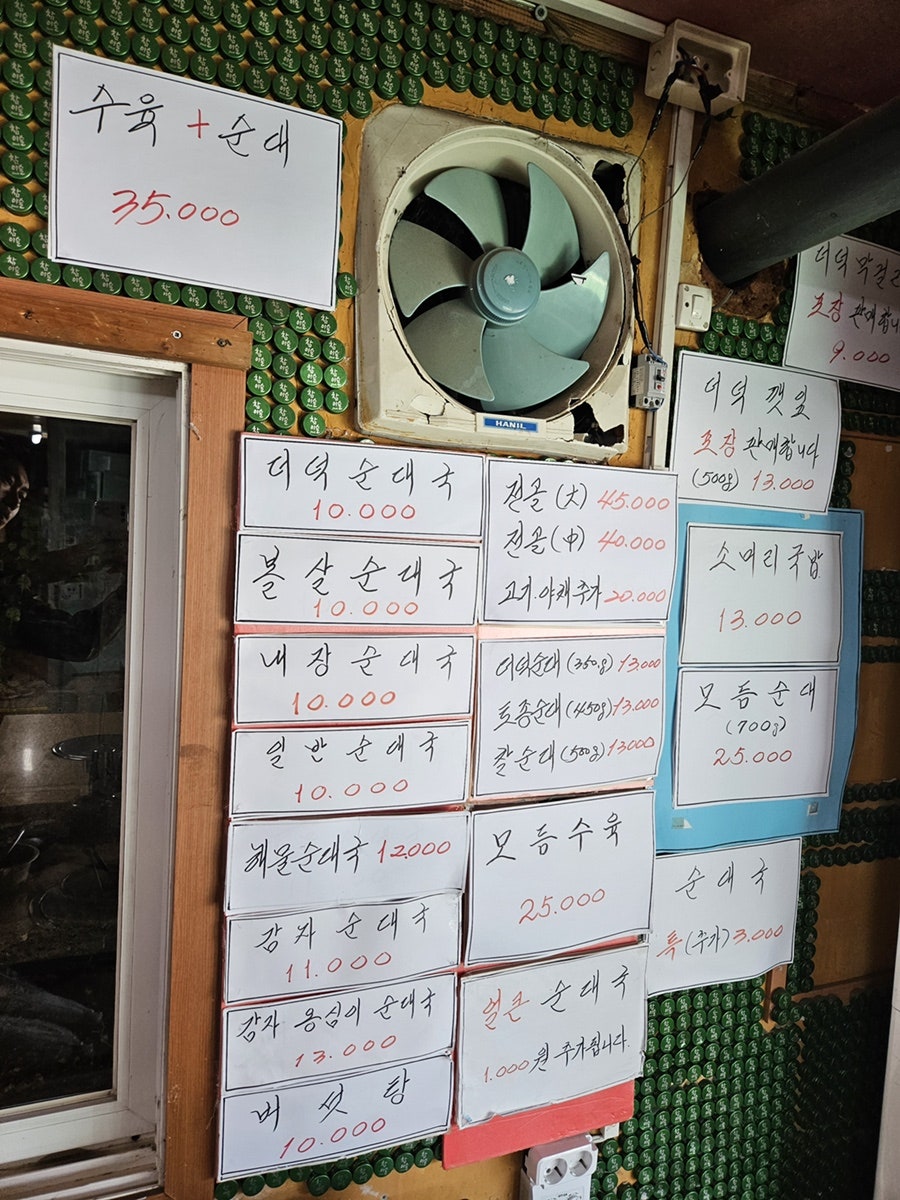 수육 + 순대
35.000
HANIL
더덕 순대국
10.000
볼살순대국
10.000
내장순대국
10.000
일반순대국
10.000
해물순대국 12.000
감자순대국
11.000
감자 옹심이 순대국
13.000
버섯탕
10.000
전골(大) 45.000
전골(中) 40.000
고기.야채추가 20.000
더덕순대(350g) 13.000
토종순대(450g) 13.000
찰순대(500g) 13000
모듬수육
25.000
얼큰 순대국
1.000원 추가됩니다.
더덕 막걸리
포장 판매합니
9.000
더덕 깻잎
포장 판매합니다
(500g) 13.000
소머리국밥
13.000
모듬순대
(700g)
25.000
순대국
특(추가) 3.000